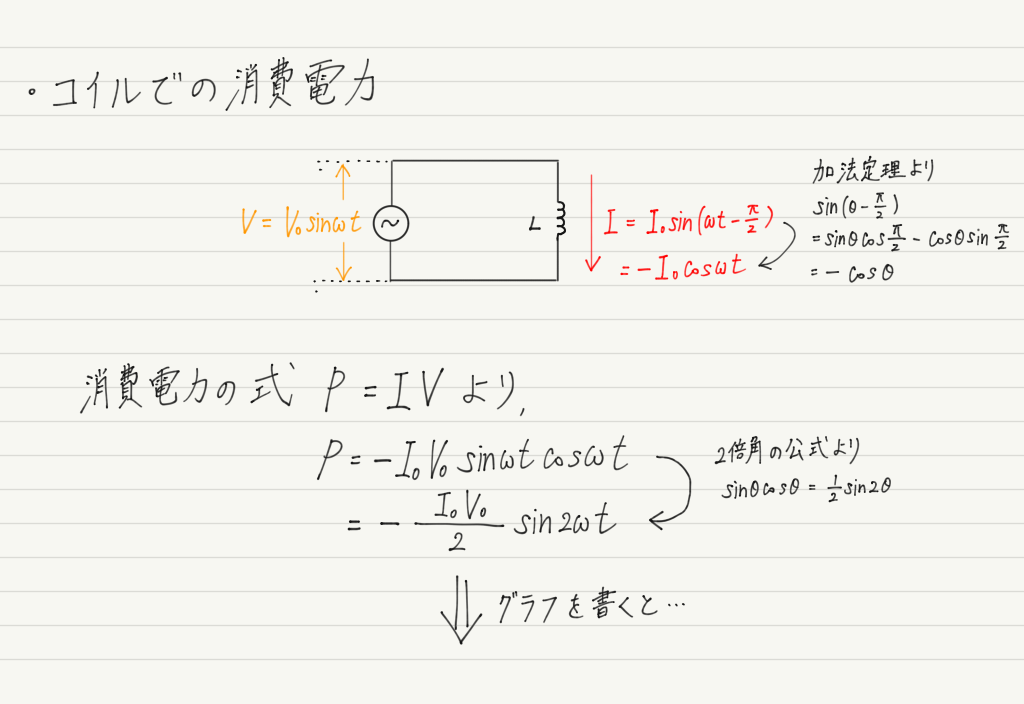 ・コイルでの消費電力
V = V₀ sinωt
L
I = I₀ sin(ωt - π/2)
= - I₀ cosωt
加法定理より
sin(θ - π/2)
= sinθ cos π/2 - cosθ sin π/2
= - cosθ
消費電力の式 P = IV より,
P = - I₀ V₀ sinωt cosωt
= - I₀V₀/2 sin2ωt
2倍角の公式より
sinθcosθ = 1/2 sin2θ
グラフを書くと…